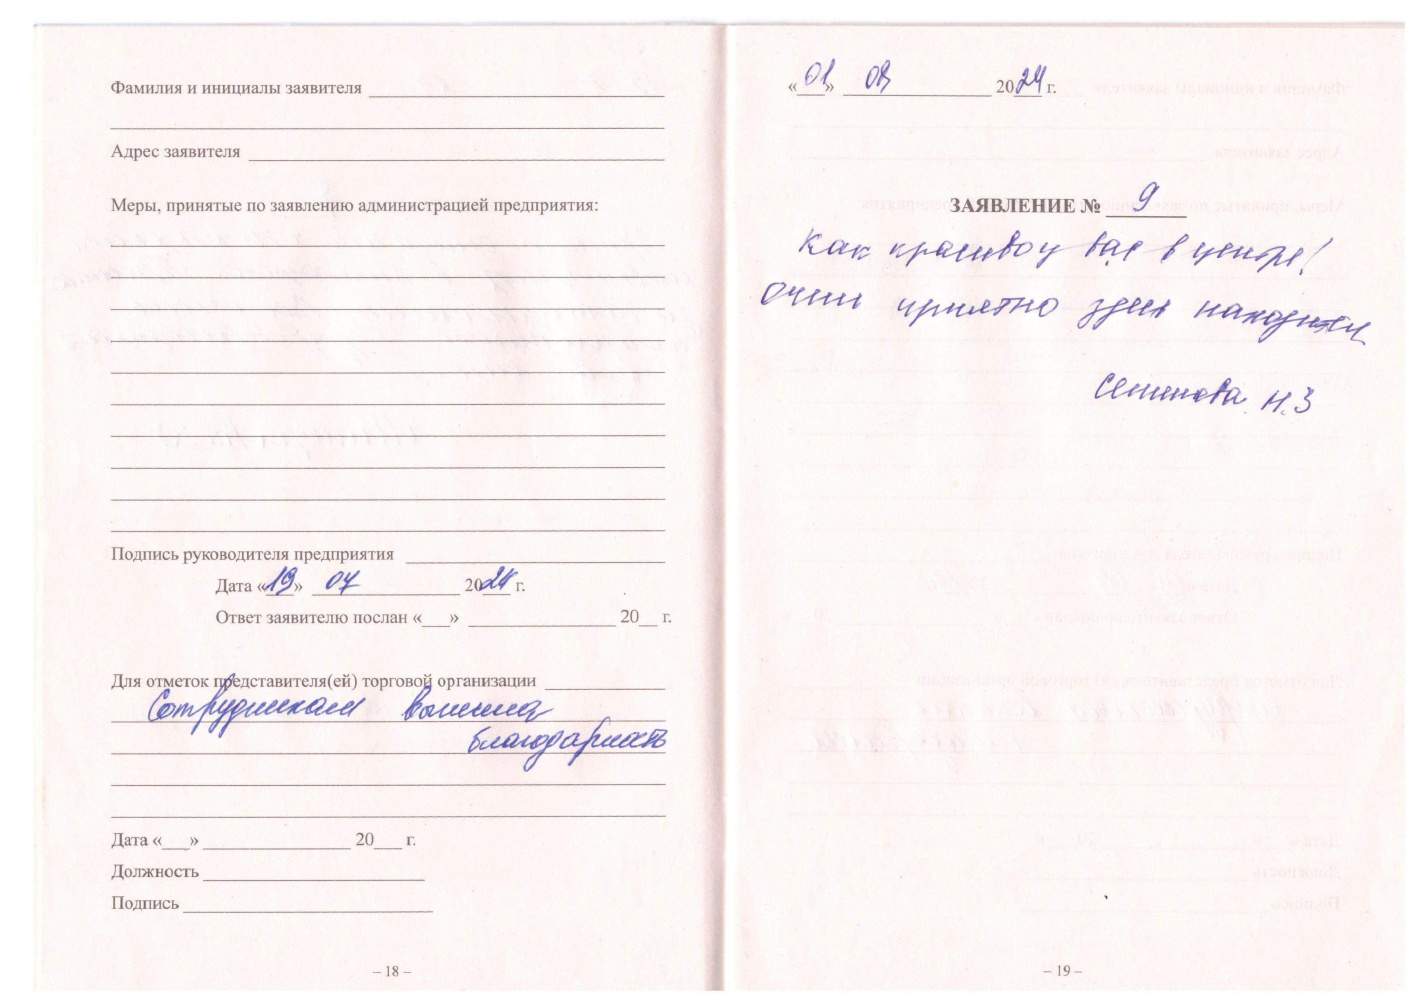 Фамилия и инициалы заявителя
Адрес заявителя
Меры, принятые по заявлению администрацией предприятия:
Подпись руководителя предприятия
Дата «19» 07 2024 г.
Ответ заявителю послан «___» ________ 20__ г.
Для отметок представителя(ей) торговой организации
Сотрудникам вынесена
благодарность
Дата «___» ________ 20___ г.
Должность
Подпись
– 18 –
«01» 08 2024 г.
ЗАЯВЛЕНИЕ № 9
Как красиво у вас в центре!
Очень приятно здесь находится
Н.З
– 19 –